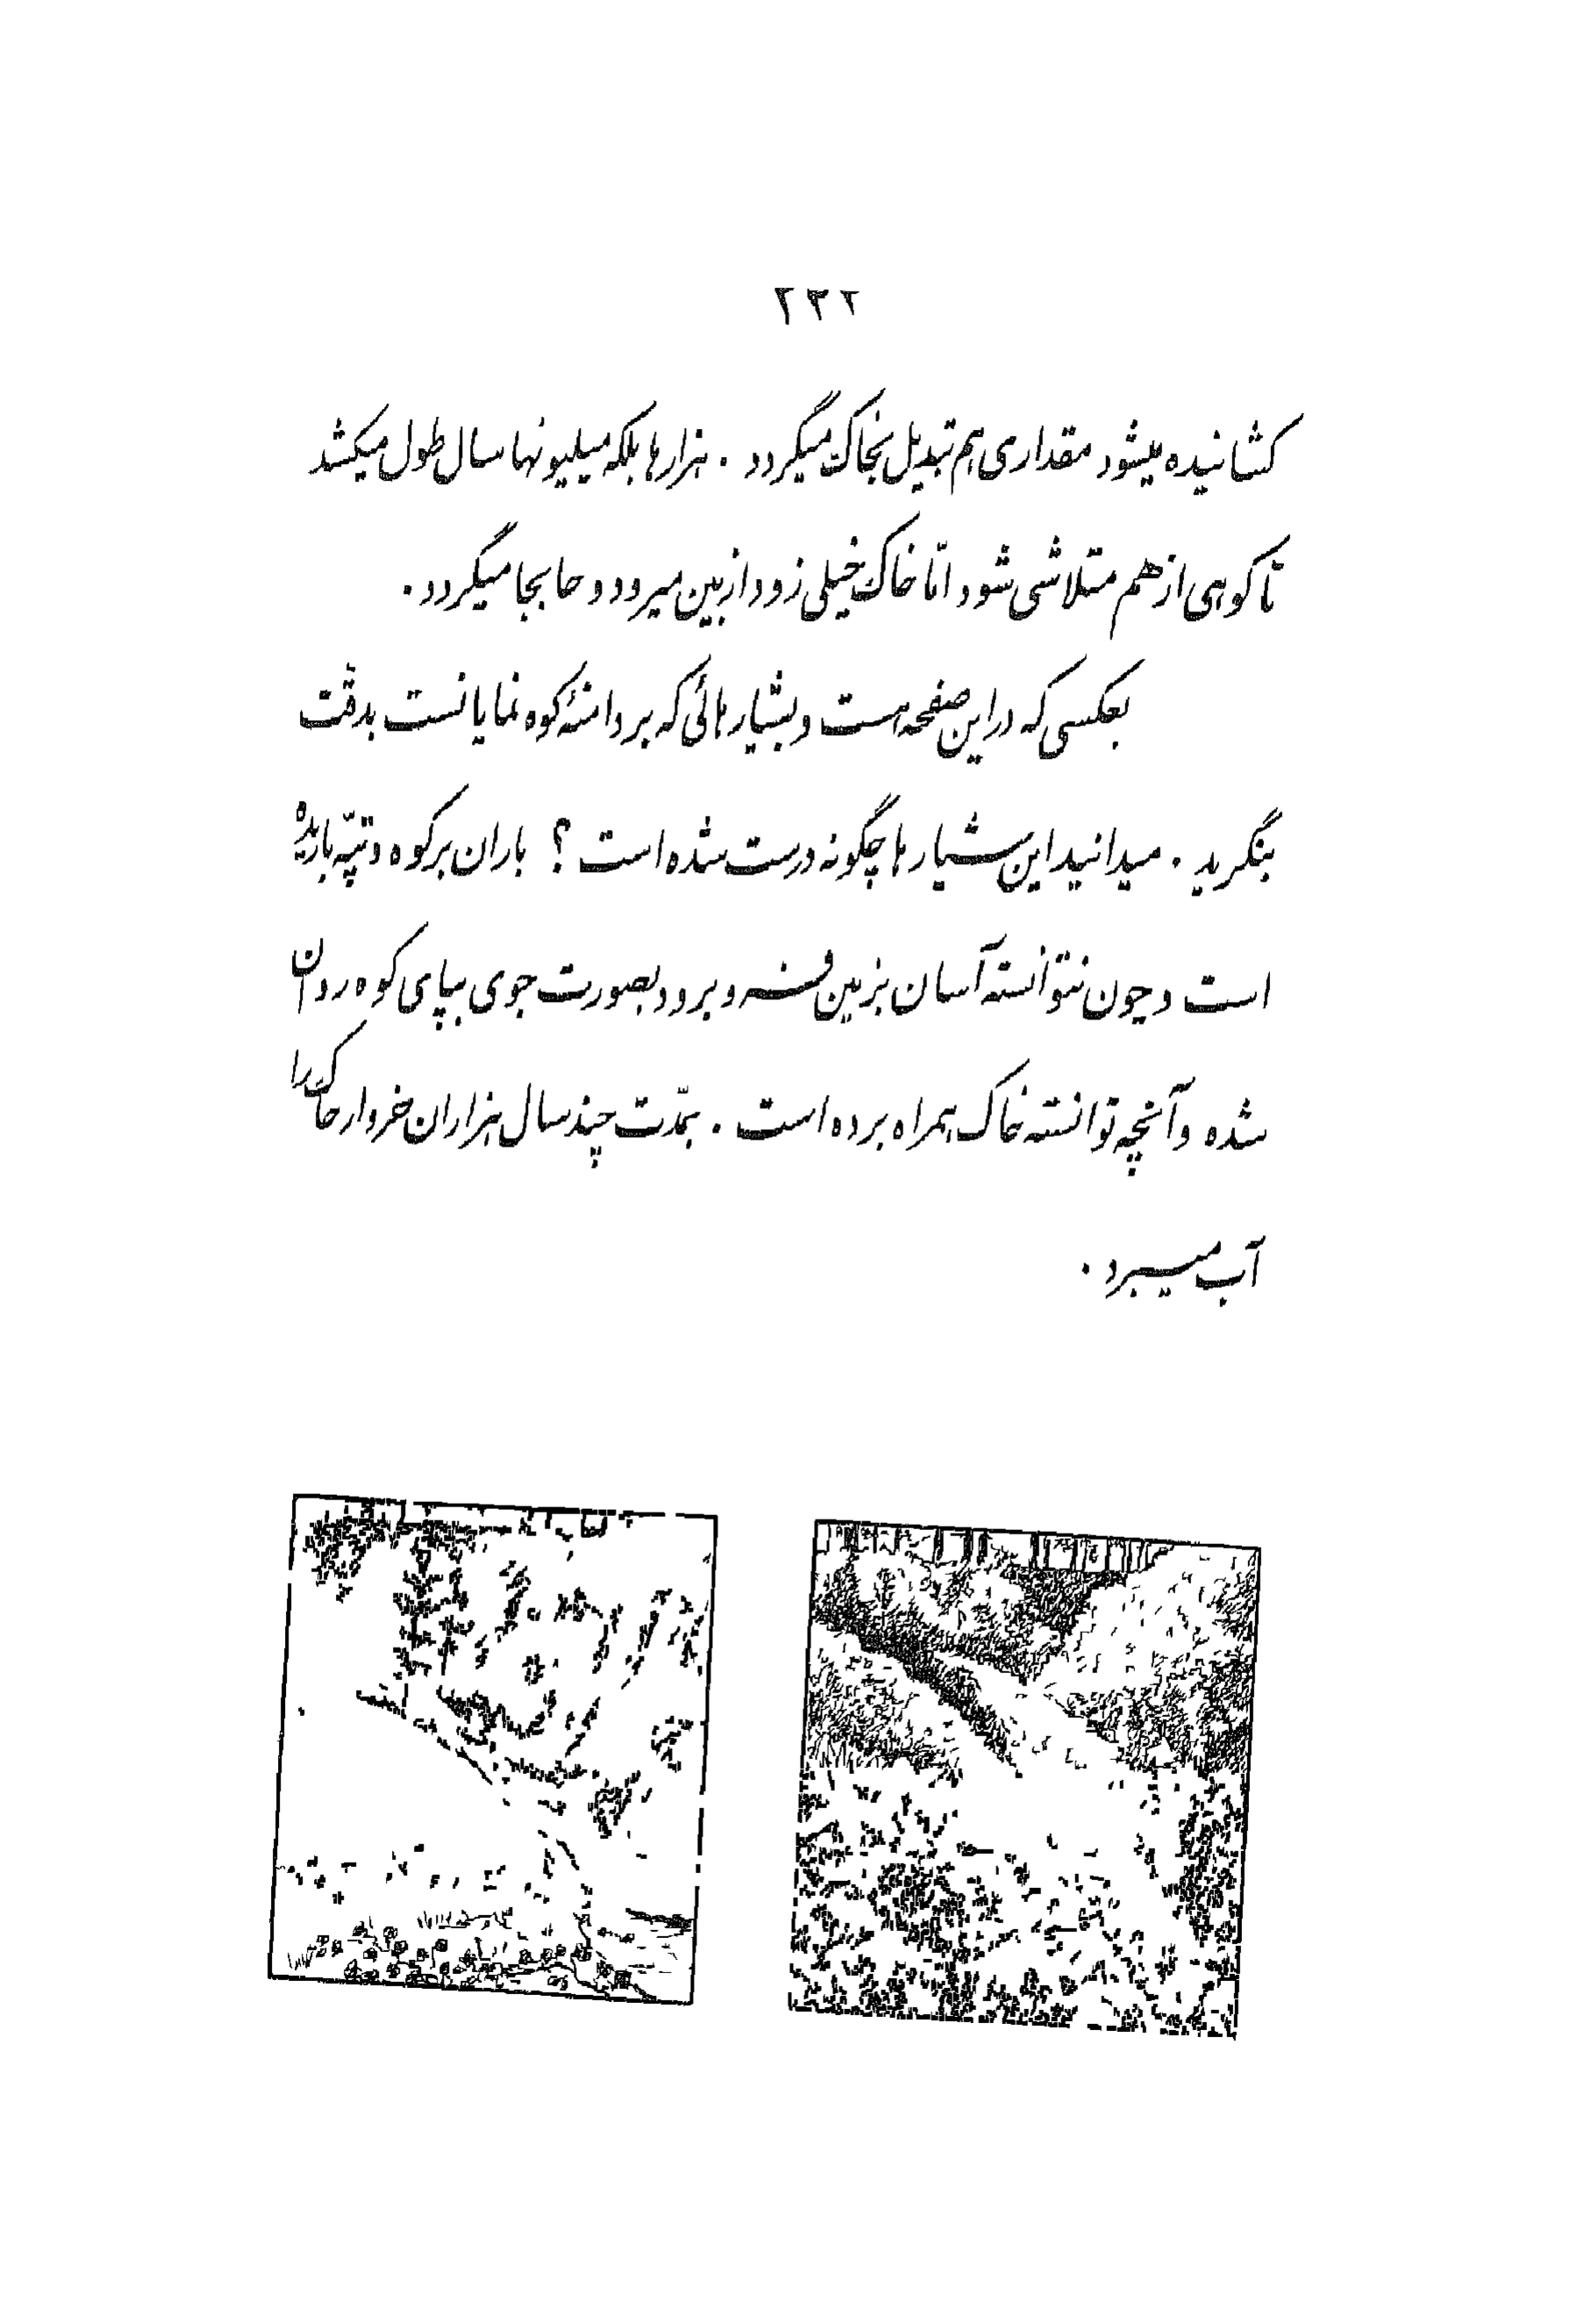 ۲۳۲
کشانیده میشود مقداری هم تبدیل بخاک میگردد . هزارها بلکه میلیونها سال طول میکشد
تا کوهی از هم متلاشی شود امّا خاک خیلی زود از بین میرود و جابجا میگردد .
بعکسی که در این صفحه است و بشیارهائی که بر دامنهٔ کوه نمایانست بدقّت
بنگرید . میدانید این شیارها چگونه درست شده است ؟ باران بر کوه و تپّه باریده
است و چون نتوانسته آسان بزمین فرو برود بصورت جوی بپای کوه روان
شده و آنچه توانسته خاک همراه برده است . بمدّت چند سال هزاران خروار خاک را
آب میبرد .